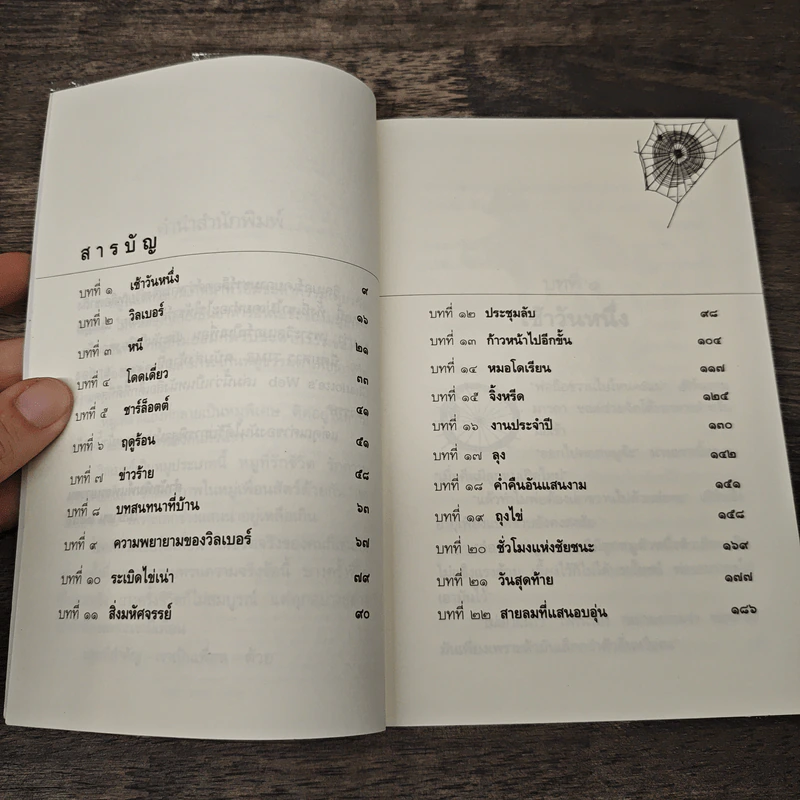 สารบัญ
บทที่ ๑ เช้าวันหนึ่ง ๙
บทที่ ๒ วิลเบอร์ ๑๖
บทที่ ๓ หนี ๒๑
บทที่ ๔ โดดเดี่ยว ๓๓
บทที่ ๕ ชาร์ล็อตต์ ๔๑
บทที่ ๖ ฤดูร้อน ๕๑
บทที่ ๗ ข่าวร้าย ๕๘
บทที่ ๘ บทสนทนาที่บ้าน ๖๓
บทที่ ๙ ความพยายามของวิลเบอร์ ๖๗
บทที่ ๑๐ ระเบิดไข่เน่า ๗๙
บทที่ ๑๑ สิ่งมหัศจรรย์ ๙๐
บทที่ ๑๒ ประชุมลับ ๙๘
บทที่ ๑๓ ก้าวหน้าไปอีกขั้น ๑๐๔
บทที่ ๑๔ หมอโดเรียน ๑๑๗
บทที่ ๑๕ จิ้งหรีด ๑๒๔
บทที่ ๑๖ งานประจำปี ๑๓๐
บทที่ ๑๗ ลุง ๑๔๒
บทที่ ๑๘ ค่ำคืนอันแสนงาม ๑๕๑
บทที่ ๑๙ ถุงไข่ ๑๕๘
บทที่ ๒๐ ชั่วโมงแห่งชัยชนะ ๑๖๙
บทที่ ๒๑ วันสุดท้าย ๑๗๗
บทที่ ๒๒ สายลมที่แสนอบอุ่น ๑๘๖